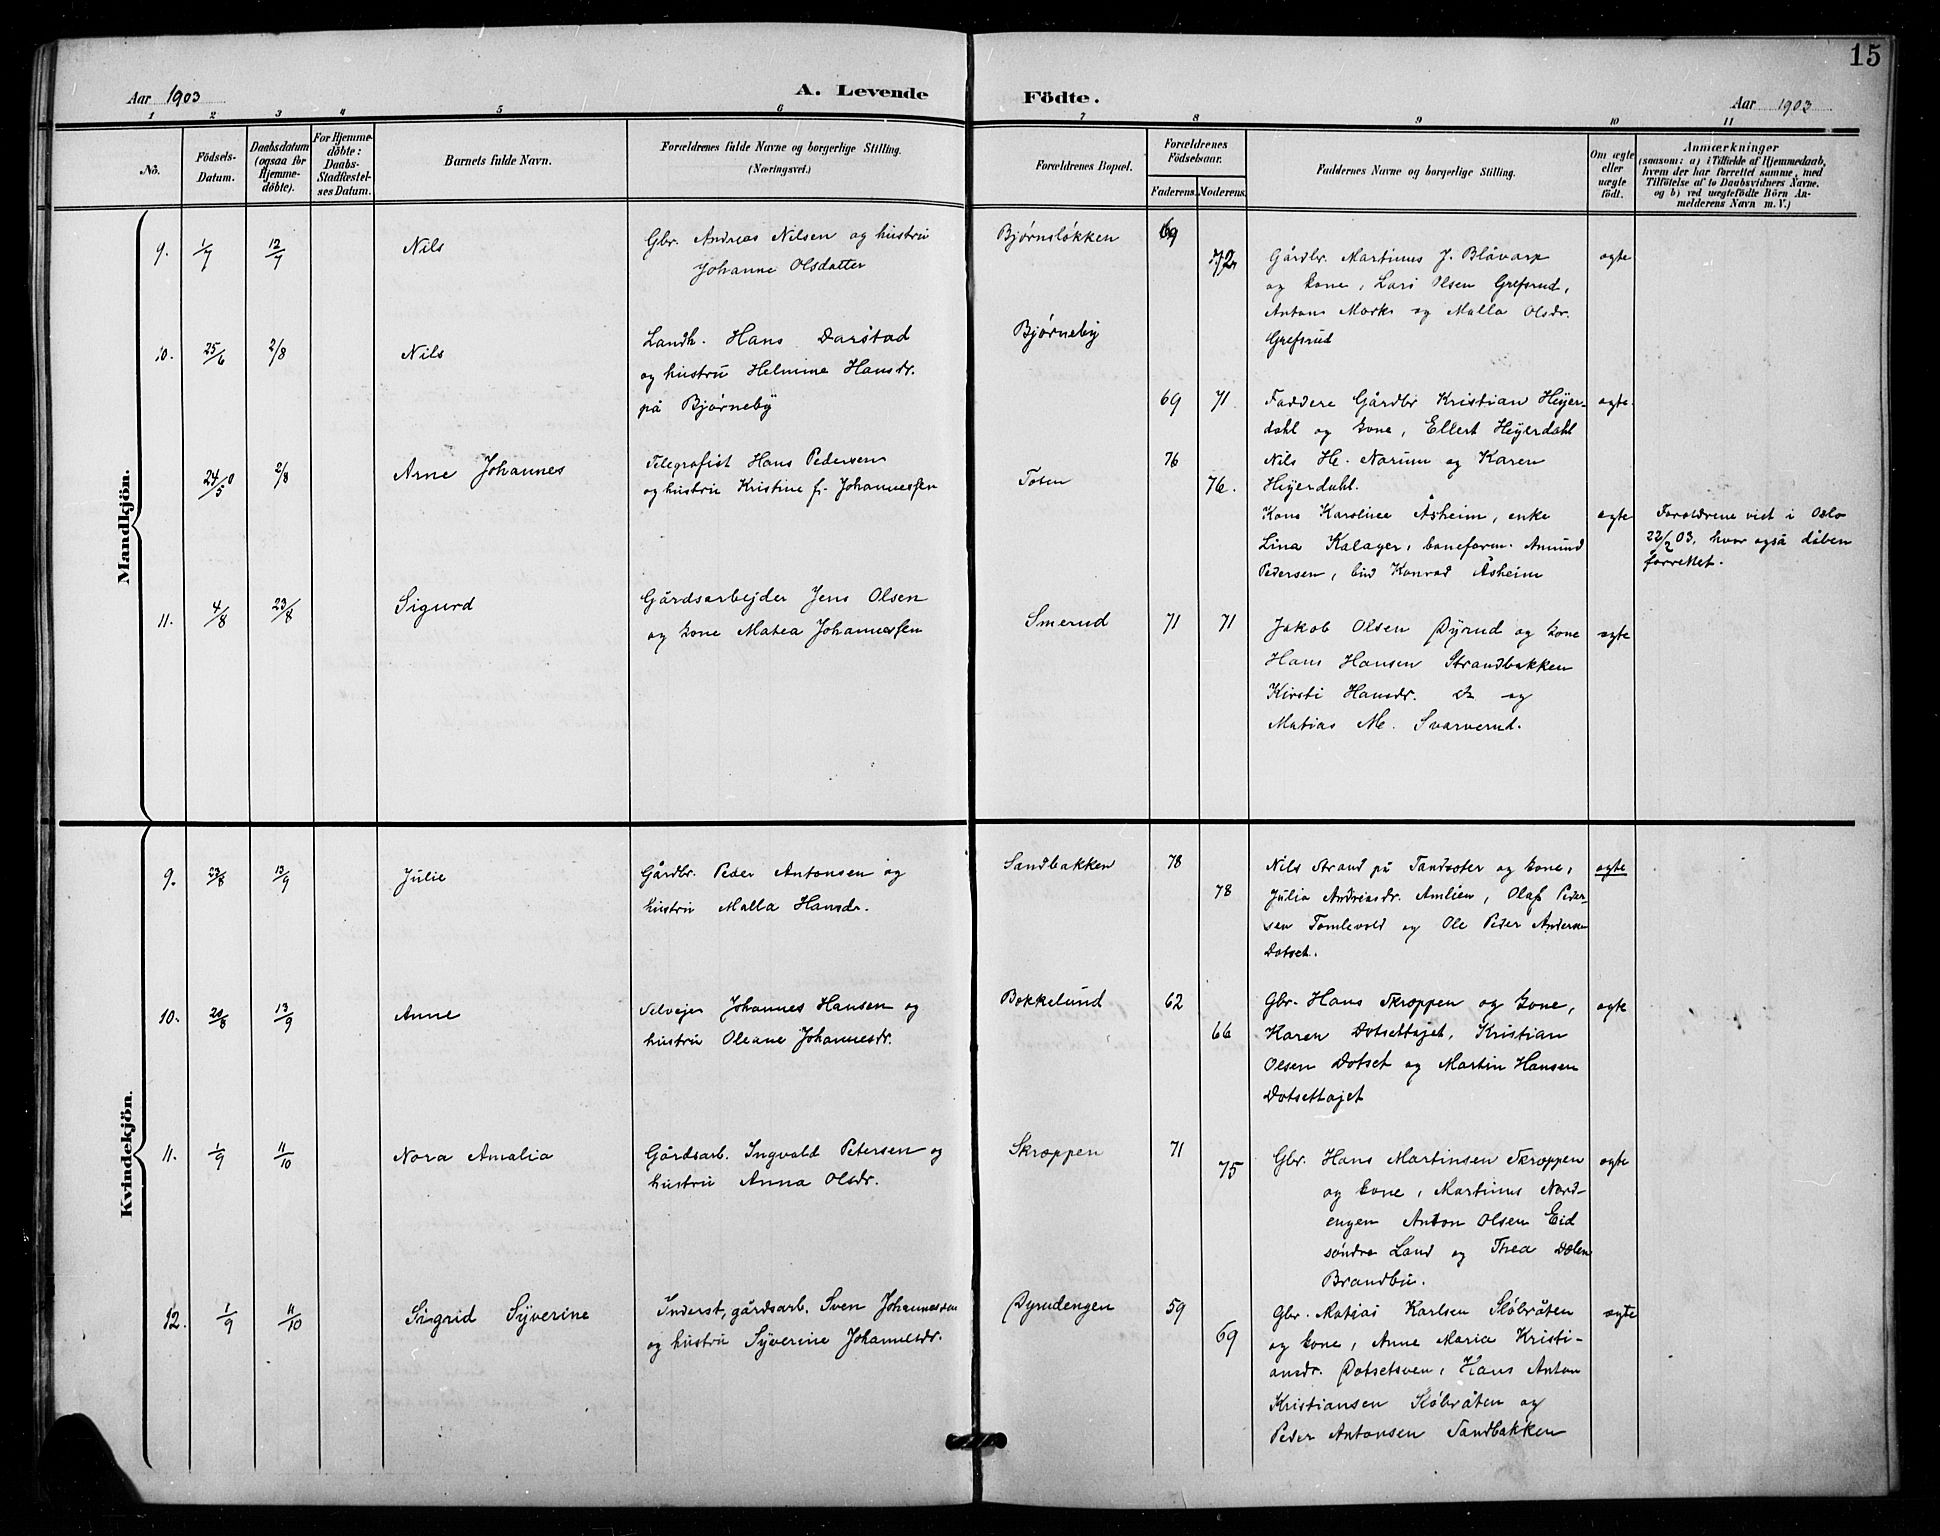 15
Aar 1903 A. Levende Födte. Aar 1903
1 2 3 4 5 6 7 8 9 10 11
No.
Födsels-
Datum.
Daabsdatum
(ogsaa for
Hjemme-
döbte).
For Hjemme-
döbte:
Daabs-
Stadfæstel-
ses Datum.
Barnets fulde Navn.
Forældrenes fulde Navne og borgerlige Stilling.
(Næringsvei.)
Forældrenes Bopæl.
Forældrenes
Födselsaar.
Faderens. Moderens.
Faddernes Navne og borgerlige Stilling.
Om ægte
eller
uægte
födt.
Anmærkninger
(saasom: a) i Tilfælde af Hjemmedaab,
hvem der har forrettet samme, med
Tilföielse af to Daabsvidners Navne.
og b) ved uægtefödte Börn An-
melderens Navn m. V.)
Mandkjön.
9. 1/7 12/7 Nils
Gbr. Andreas Nilsen og hustru
Johanne Olsdatter
Bjørnsløkken 69
72
Gårdbr. Martinus J. Blåvarp
og kone, Lars Olsen Grefsrud,
Antons Mork og Malla Olsdr.
Grefsrud
ægte
10. 25/6 2/8 Nils
Landh. Hans Dæstad
og hustru Helmine Hansdr.
på Bjørneby
Bjørneby
69 71
Faddere Gårdbr Kristian Heyer-
dahl og kone, Ellert Heyerdahl
Nils H. Narum og Karen
Heyerdahl.
ægte.
24/5 0 2/8 Arne Johannes
Telegrafist Hans Pedersen
og hustru Kristine f. Johannessen
Toten
76
76.
Kone Karoline Åsheim, enke
Lina Kalager, baneform. Amund
Pedersen, bud Konrad Åsheim
ægte
Forældrene viet i Oslo
22/2 03, hvor også dåben
forrettet.
11. 4/8 23/8 Sigurd
Gårdsarbejder Jens Olsen
og kone Matea Johannessen
Smerud 71 71
Jakob Olsen Dyrud og kone
Hans Hansen Strandbakken
Kirsti Hansdr. do og
Matias M. Svarverud.
ægte
Kvindekjön.
9. 23/8 13/9 Julie
Gårdbr. Peder Antonsen og
hustru Malla Hansdr.
Sandbakken 78
78
Nils Strand på Sandsoter og kone,
Julia Andreasdr. Amlien, Olaf Peder-
sen Tomlevold og Ole Peder Andersen
Dotset.
ægte
10. 20/8 13/9 Anne
Selvejer Johannes Hansen og
hustru Oleane Johannesdr.
Bokkelund 62
66
Gbr. Hans Skroppen og kone,
Karen Dotsethajet, Kristian
Olsen Dotset og Martin Hansen
Dotsethajet
ægte
11. 1/9 11/10 Nora Amalia
Gårdsarb. Ingvald Petersen og
hustru Anna Olsdr.
Skroppen 71
75
Gbr. Hans Martinsen Skroppen
og kone, Martinus Nord-
engen Anton Olsen Eid
søndre Land og Thea Dælen
Brandbu.
ægte
12. 1/9 11/10 Sigrid Syverine
Inderst, gårdsarb. Sven Johannessen
og hustru Syverine Johannesdr.
Dyrudengen 59
69
Gbr. Matias Karlsen Sløbråten
og kone, Anne Maria Kristi-
ansdr. Dotsetsven, Hans Anton
Kristiansen Sløbråten og
Peder Antonsen Sandbakken
ægte